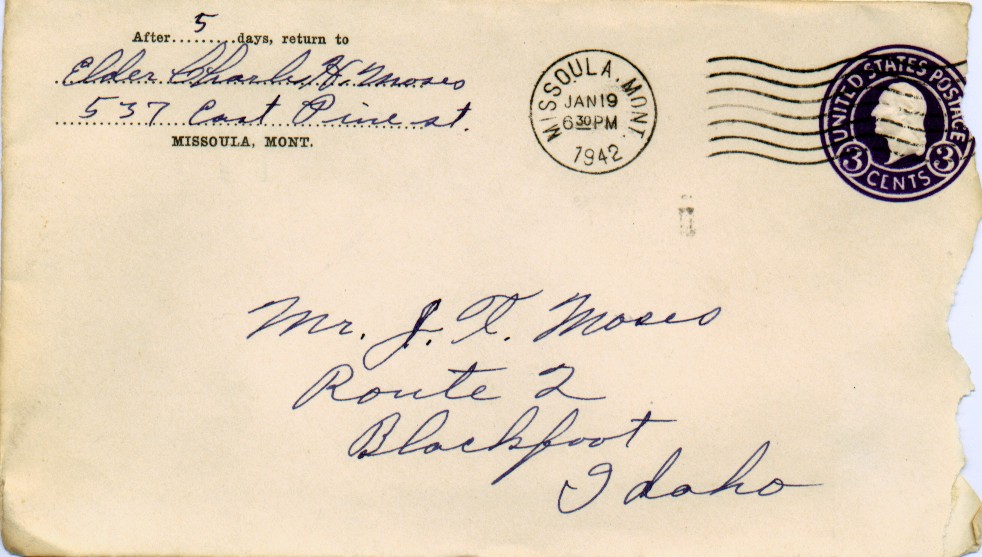 After 5 days, return to
Elder Charles H. Moses
537 East Pine st.
MISSOULA, MONT.
MISSOULA, MONT.
JAN 19
6 30 PM
1942
UNITED STATES POSTAGE
3 CENTS 3
Mr. J. T. Moses
Route 2
Blackfoot
Idaho